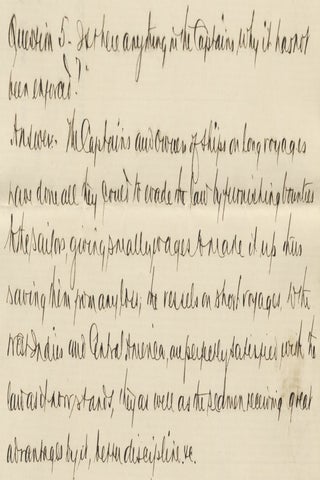 Question 5. Is there anything in the Captains, why it has not
been enforced?
Answer. The Captains and owners of ships on long voyages
have done all they could to evade the law by furnishing bounties
to the sailors, giving small wages to make it up thus
saving them from any loss; the vessels on short voyages to the
West Indies and Central America, are perfectly satisfied with the
law as it now stands, they as well as the seamen receiving great
advantages by it, better discipline &c.